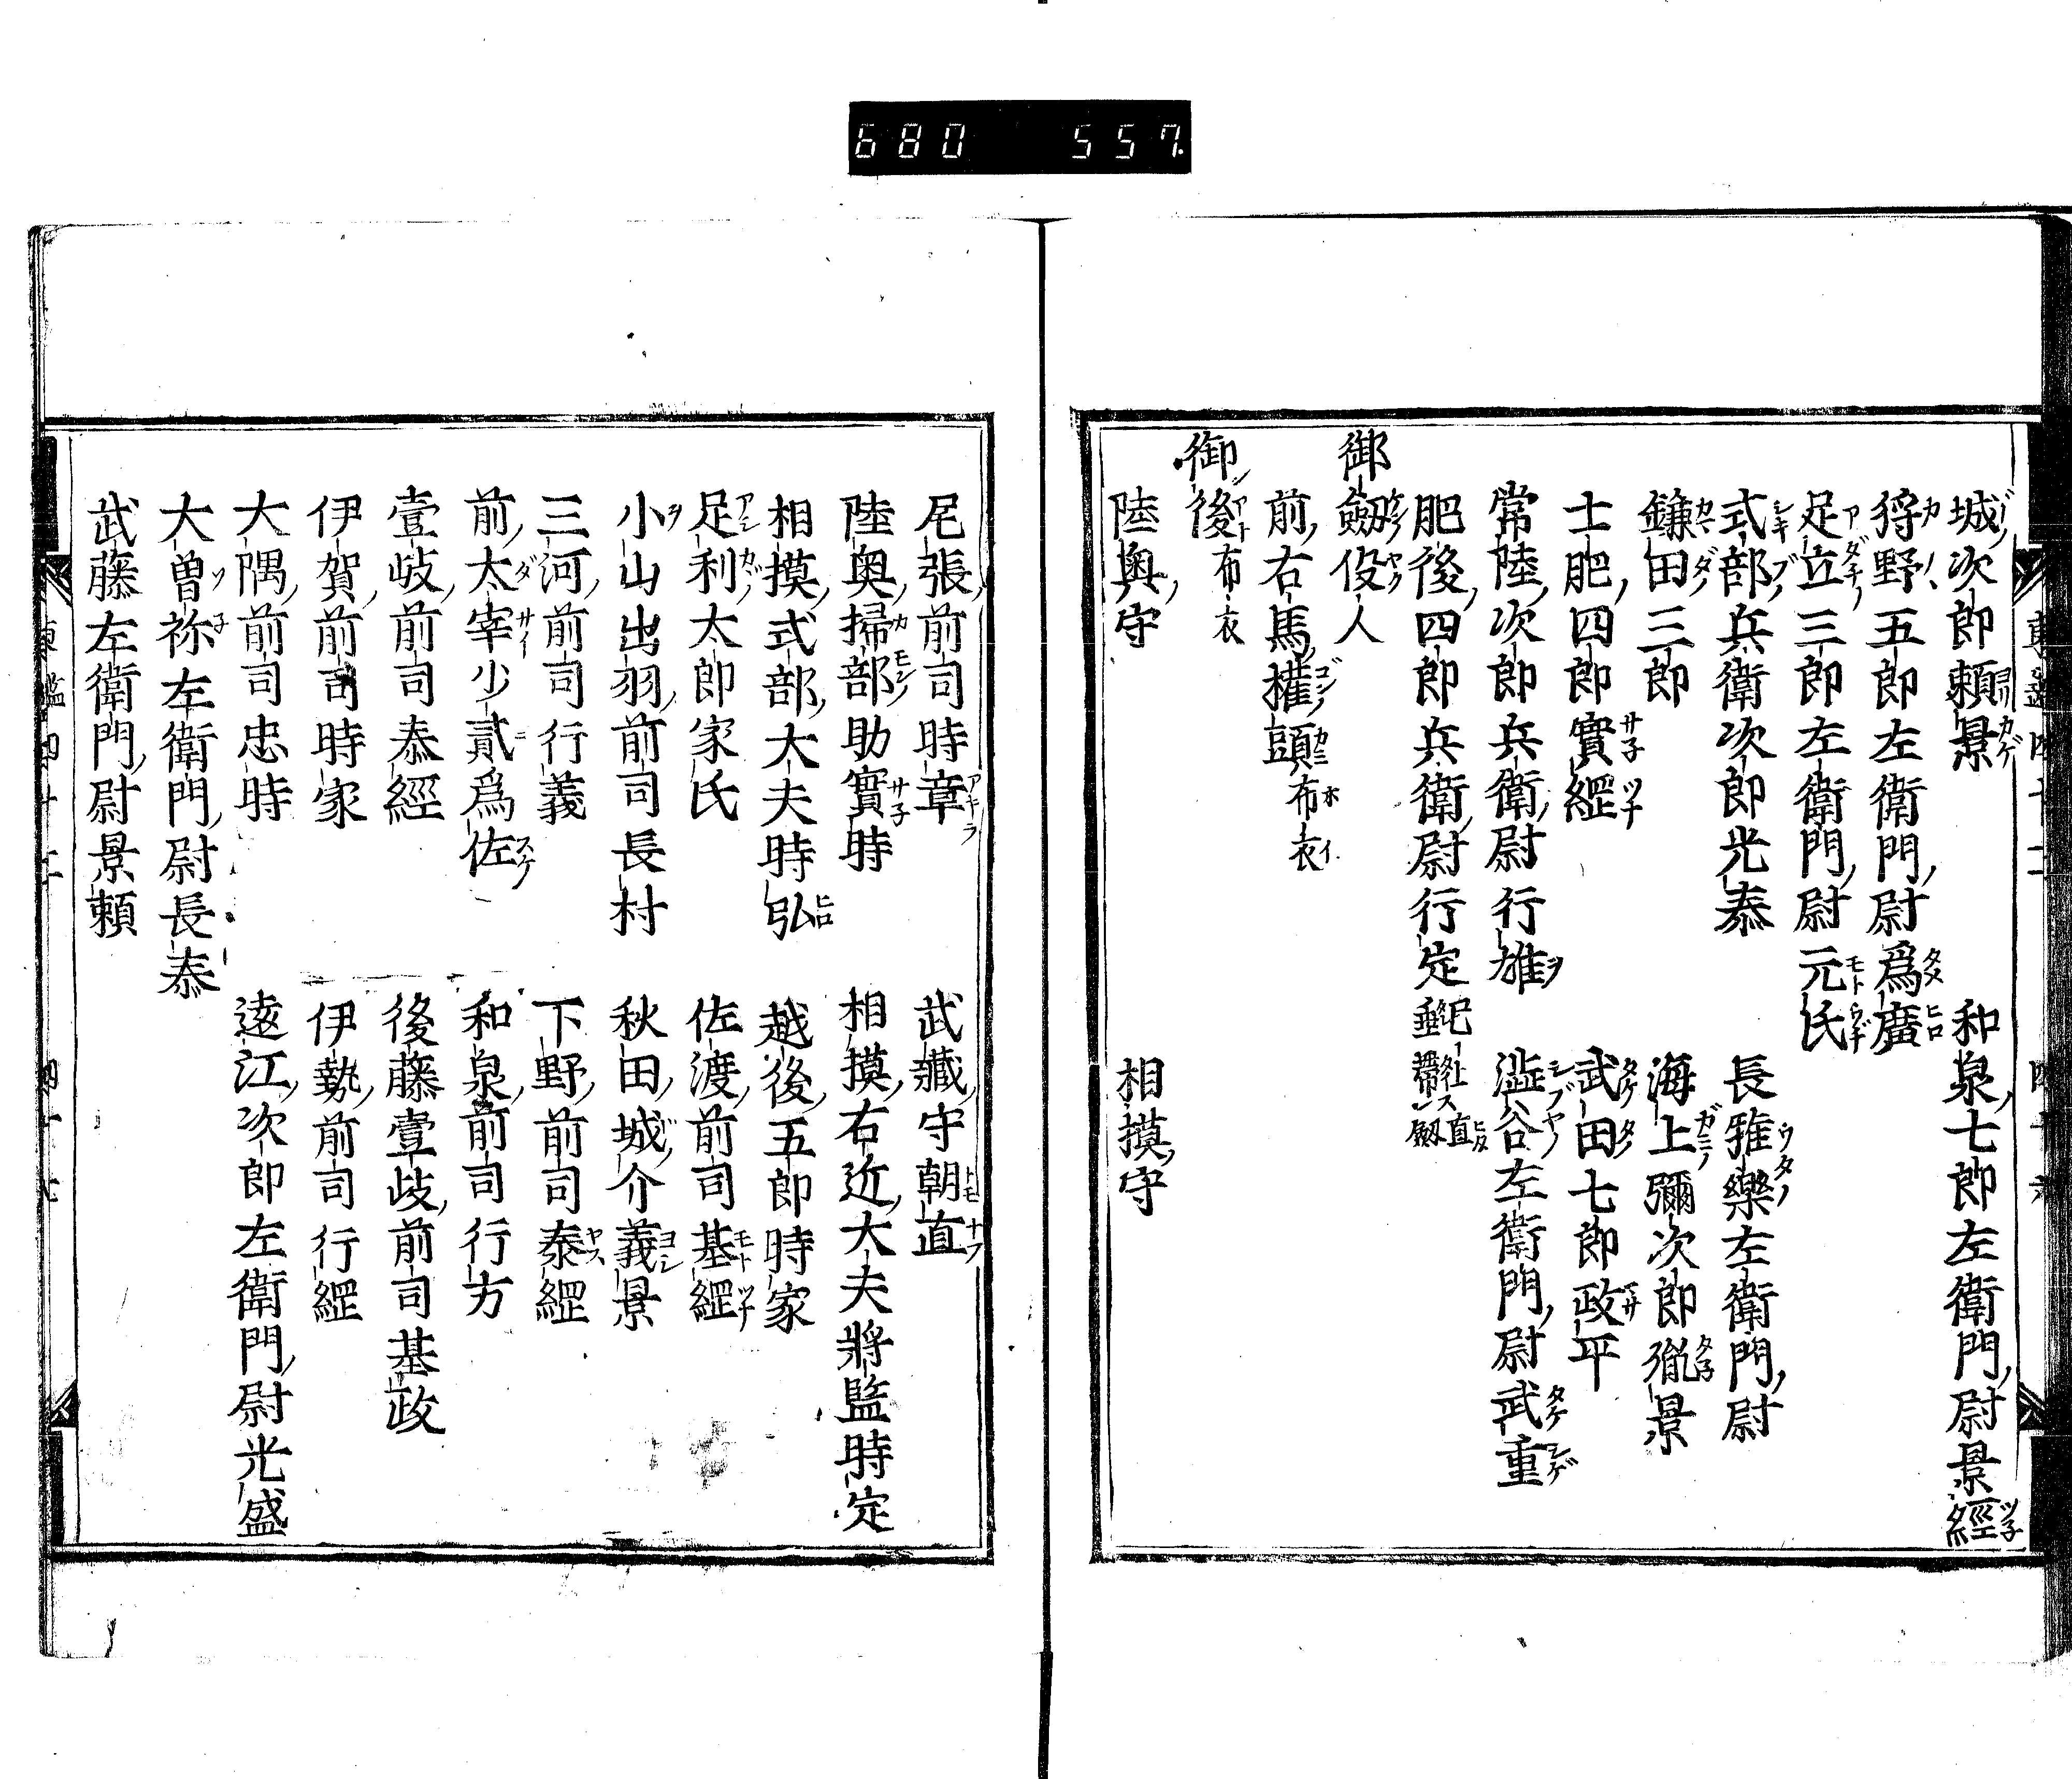 680 557
城次郎頼景 和泉七郎左衛門尉景經
狩野五郎左衛門尉爲廣
足立三郎左衛門尉元氏
式部兵衛次郎光泰 長雅樂左衛門尉
鎌田三郎 海上彌次郎胤景
土肥四郎實綱 武田七郎政平
常陸次郎兵衛尉行雄 澁谷左衛門尉武重
肥後四郎兵衛尉行定
御劔役人
前右馬權頭布衣
御後布衣
陸奥守 相摸守
尾張前司時章 武藏守朝直
陸奥掃部助實時 相摸右近大夫將監時定
相摸式部大夫時弘 越後五郎時家
足利太郎家氏 佐渡前司基綱
小山出羽前司長村 秋田城介義景
三河前司行義 下野前司泰綱
前太宰少貳爲佐 和泉前司行方
壹岐前司泰經 後藤壹岐前司基政
伊賀前司時家 伊勢前司行綱
大隅前司忠時 遠江次郎左衛門尉光盛
大曽祢左衛門尉長泰
武藤左衛門尉景頼